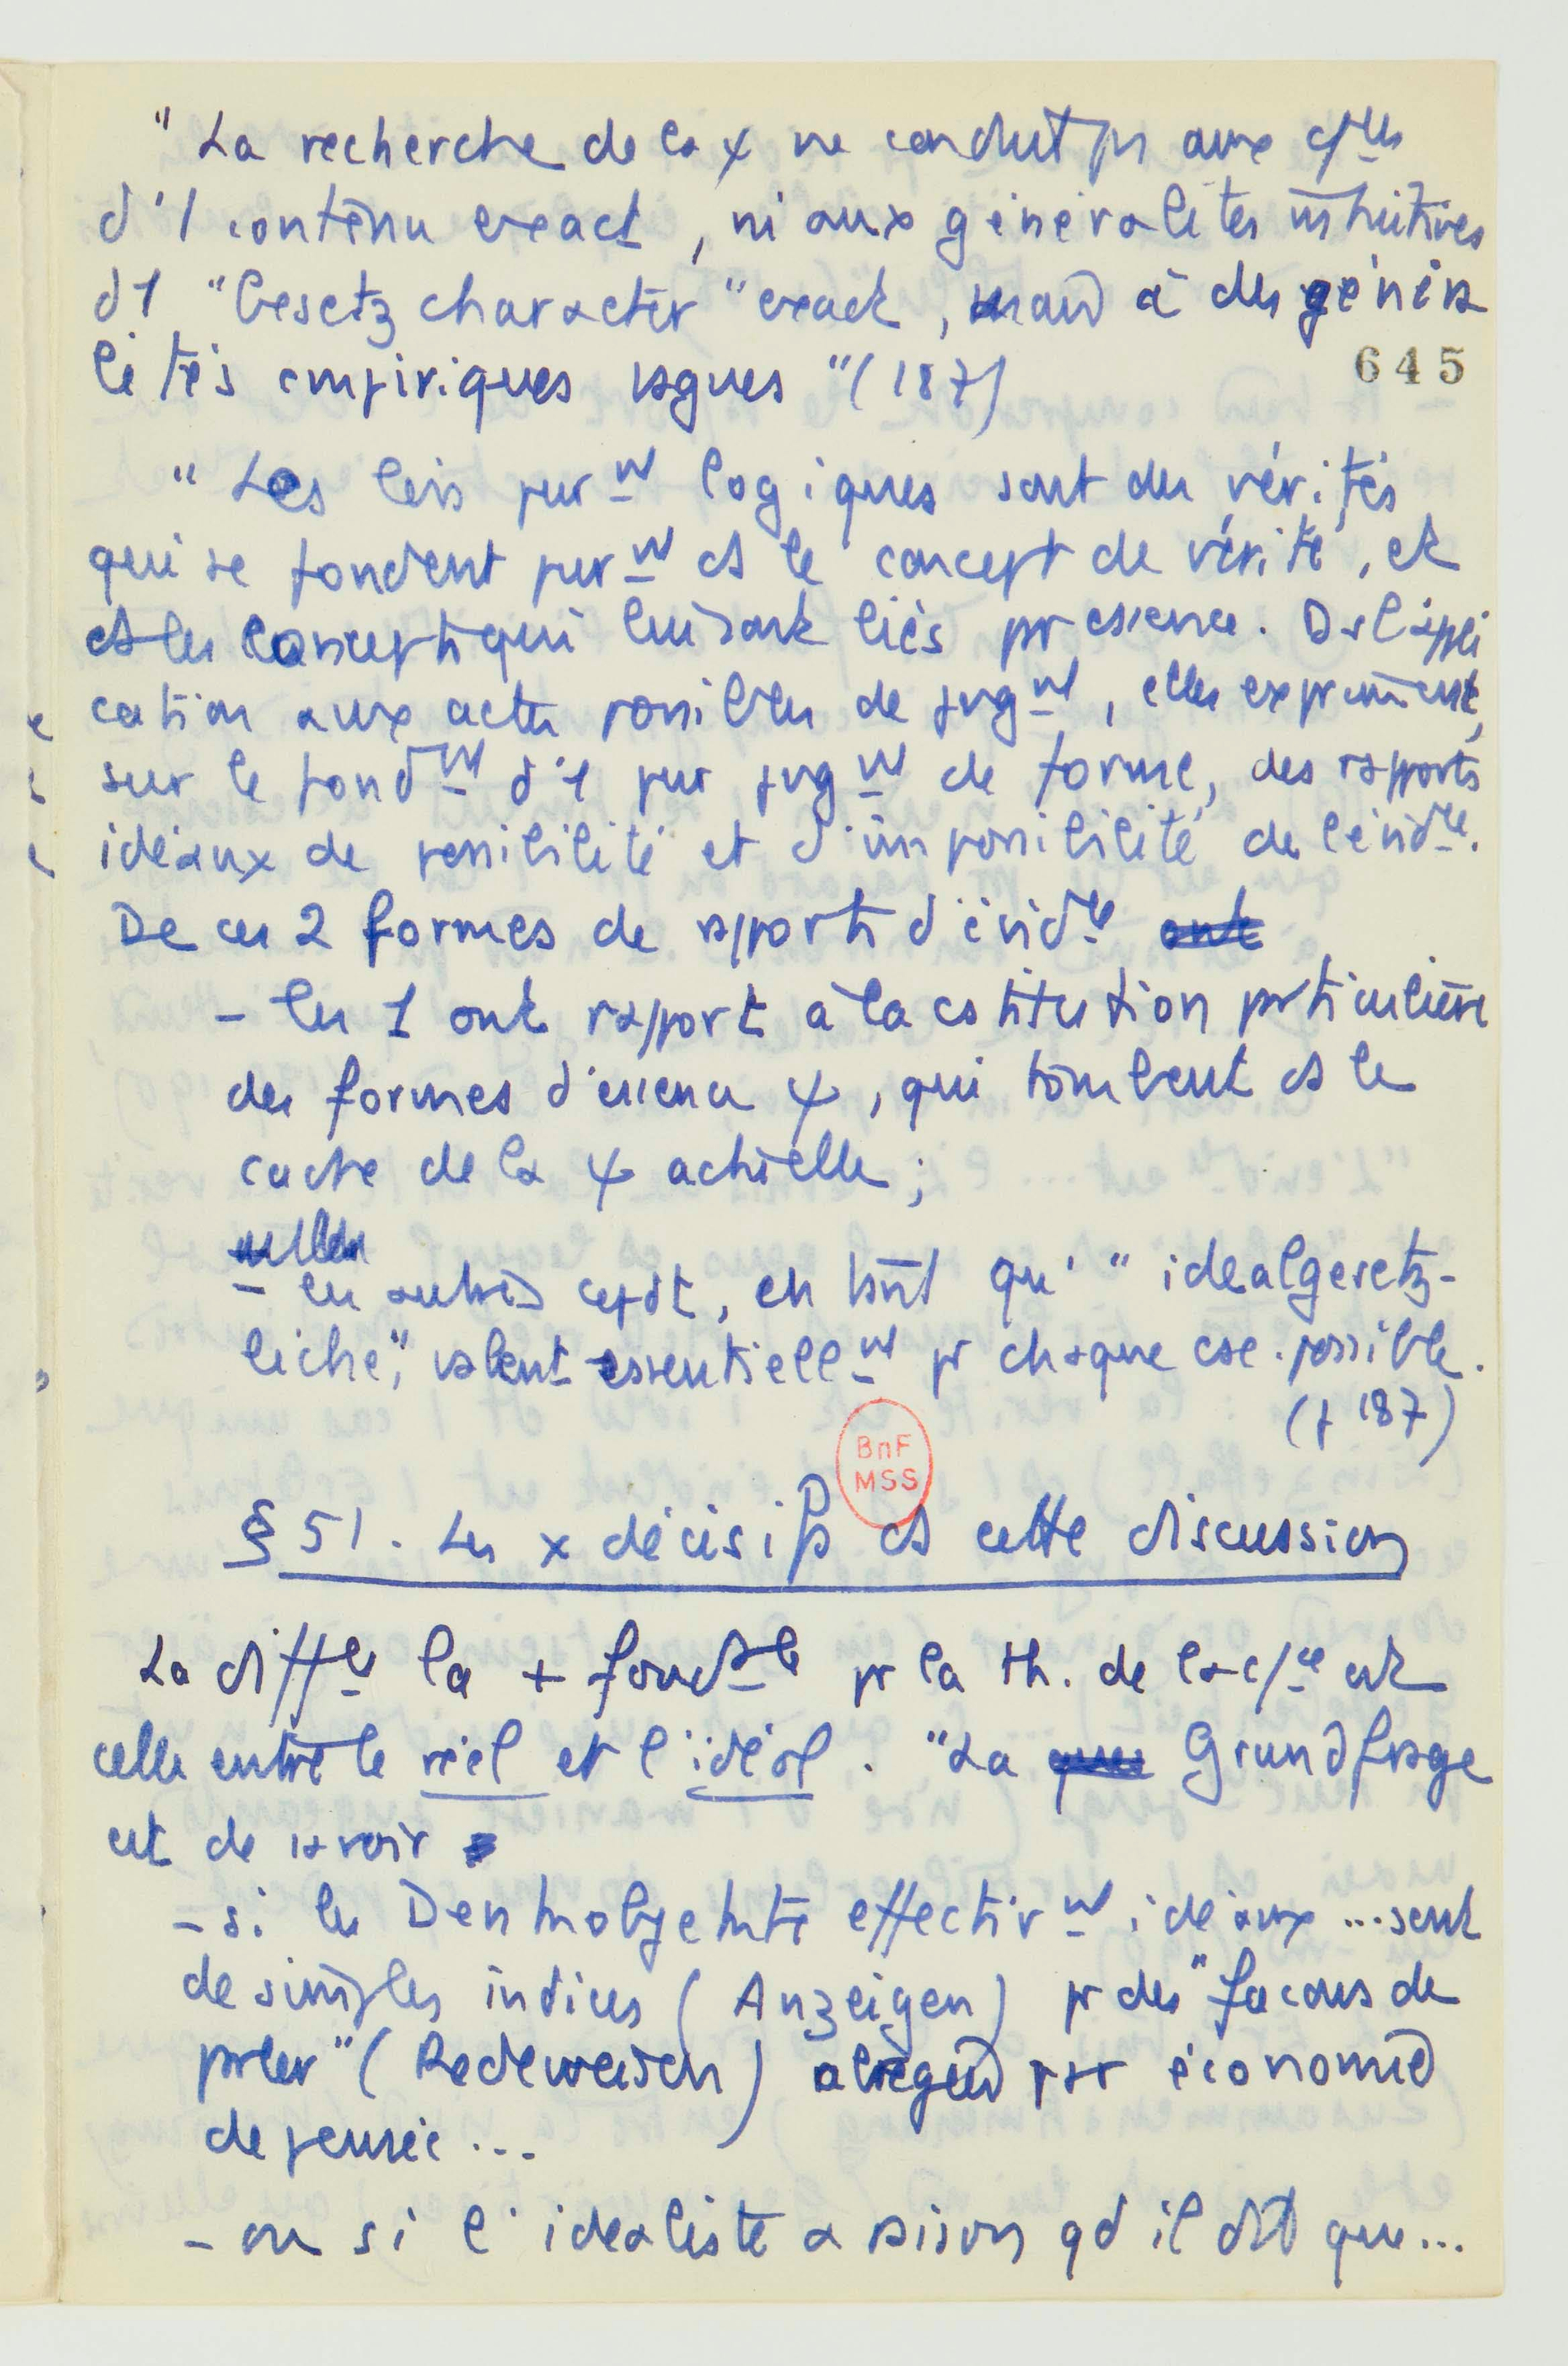 " La recherche de la ψ ne conduit pas aux cf les
d'1 contenu exact, ni aux généralités intuitives
d'1 "Gesetzcharacter" exact, mais à des généra
lités empiriques vagues" (187)
645
" Les lois purnt logiques sont des vérités
qui se fondent purnt ds le concept de vérité, et
ds les concepts qui lui sont liés pr essence. Ds l'appli
cation aux actes possibles de jugnt, elles expriment,
sur le fondnt d'1 pur jugnt de forme, des rapports
idéaux de possibilité et d'impossibilité de l'évidce.
De ces 2 formes de rapports d'évidce
- les 1 ont rapport à la cstitution particulière
des formes d'essence ψ, qui tombent ds le
cadre de la ψ actuelle ;
- les autres cepdt, en tant qu' " idealgesetz-
liche", valent essentiellnt pr chaque cse. possible.
(p 187)
BnF
MSS
§ 51. Les x décisifs ds cette discussion
La diffce la + fondtle pr la th. de la c/ce est
celle entre le réel et l'idéal. "La Grundfrage
est de savoir
- si les Denkobjekte effectivnt idéaux ... sont
de simples indices (Anzeigen) pr des "façons de
parler" (Redeweisen) abrégées par économie
de pensée ...
- ou si l'idéaliste a raison qd il dit que...